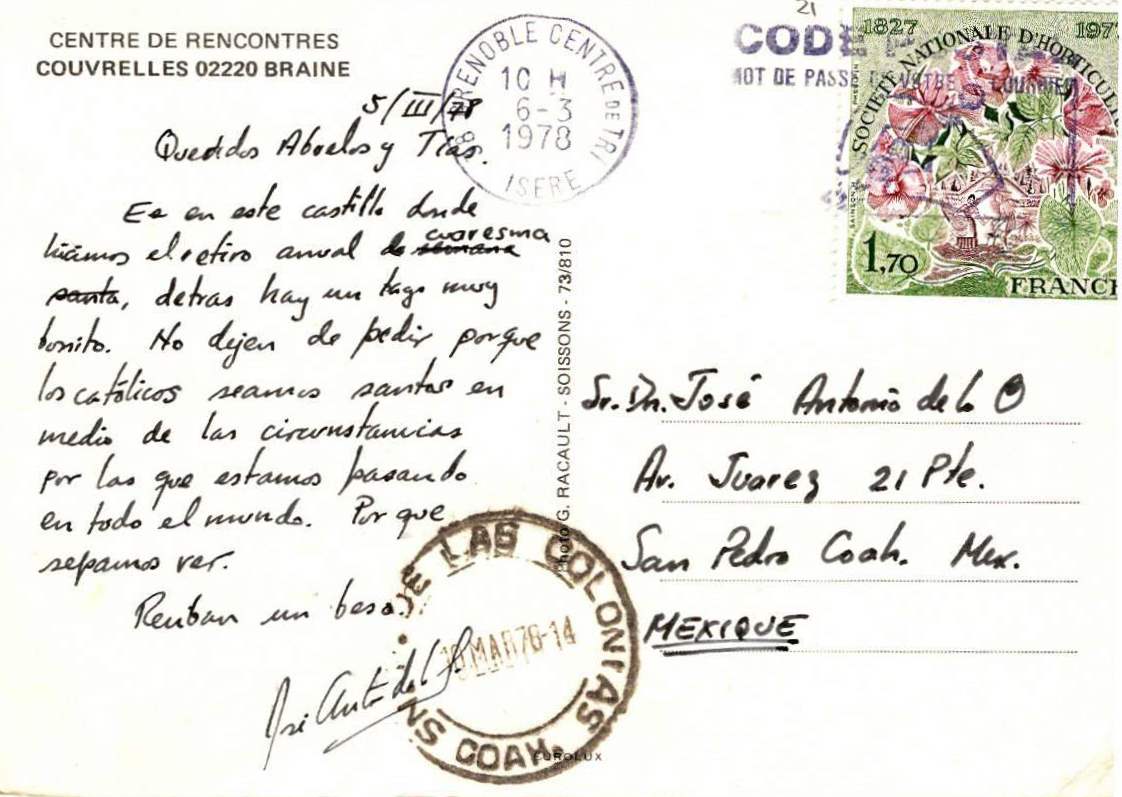 CENTRE DE RENCONTRES
COUVRELLES 02220 BRAINE
5/III/78
Queridos Abuelos y Tías.
Es en este castillo donde
hicimos el retiro anual de cuaresma
semana
santa, detras hay un lago muy
bonito. No dejen de pedir porque
los católicos seamos santos en
medio de las circunstancias
por las que estamos pasando
en todo el mundo. Por que
sepamos ver.
Reciban un beso.
José Anto de la O
Photo G. RACAULT - SOISSONS - 73/810
EUROLUX
38 GRENOBLE CENTRE DE TRI
10 H
6-3
1978
ISERE
21
CODE
MOT DE PASSE DE VOTRE COURRIER
1827 1977
SOCIÉTÉ NATIONALE D'HORTICULTURE
1,70
FRANCE
Sr. Dn. José Antonio de la O
Av. Juarez 21 Pte.
San Pedro Coah. Mex.
MEXIQUE
DE LAS COLONIAS
MAR 78-14
COAH.